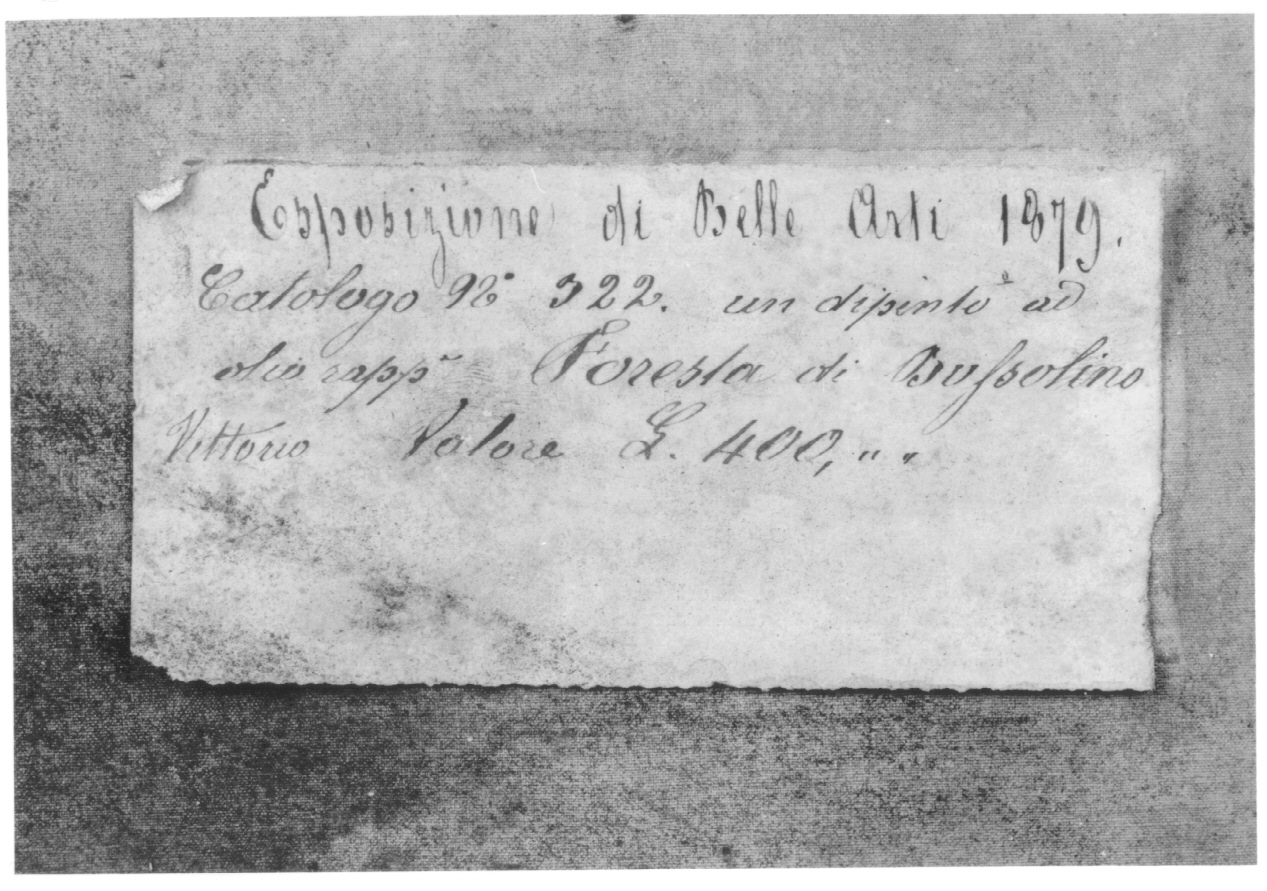 Esposizione di Belle Arti 1879.
Catologo N° 322. un dipinto ad
olio rapp.e Foresta di Bussolino
Vittorio Valore L. 400, " "